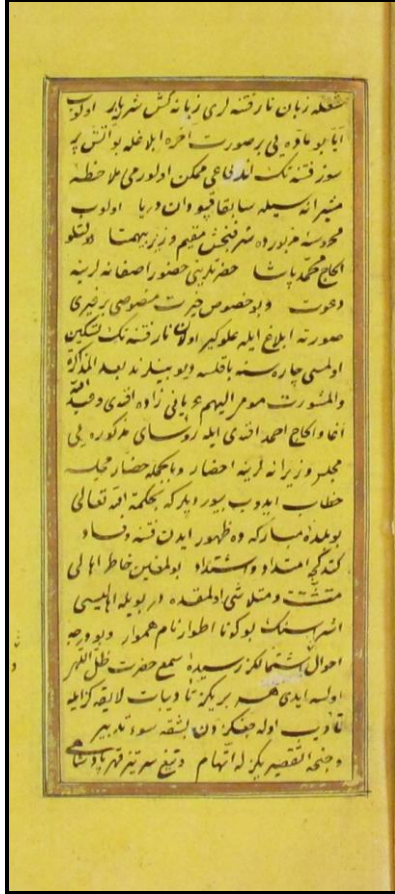 شعله زبان نار فتنه لرى زبانه كش شربار اولوب
آيا بو ماده يى بر صورت آخره ابلاغله بو آتش پر
سوز فتنه نك اندفاعى ممكن اولورمى ملاحظهٔ
مشيرانه سيله سابقا قپودان دريا اولوب
محروسهٔ مزبورده شرفبخش مقيم وزير بيهمتا دولتلو
الحاج محمد پاشا حضرتلرينى حضور اصفانه لرينه
دعوت وبو خصوص خيرت منصوصى بر خيرلى
صورته ابلاغ ايله علوكير اولان نار فتنه نك تسكين
اولمسى چاره سنه باقلسه ديو بعد المذاكرة
والمشورت مومى اليهم عريانى زاده افندى و افندى
آغا والحاج احمد افندى ايله رؤساى مذكوره يى
مجلس وزيرانه لرينه احضار وبالجمله حضار مجلسه
خطاب ايدوب بيورديلر كه بحكمة الله تعالى
بو بلدهٔ مباركه ده ظهور ايدن فتنه وفساد
كتدكجه امتداد واشتداد بولمغين خاطر اهالى
متشتت ومتلاشى اولمقده در بويله اهاليسى
اشرسنك بو كونا اطوار نام هموار وبو درجه
احوال لكز رسيدهٔ سمع حضرت ظل اللهى
اولسه ايدى هر بريكز تأديبات لايقه كزايله
تأديب اوله جغكزدن بشقه سوء تدبير
وجنحة التقصيريكزله اتهام وتيغ سرتيز قهر پادشاهى